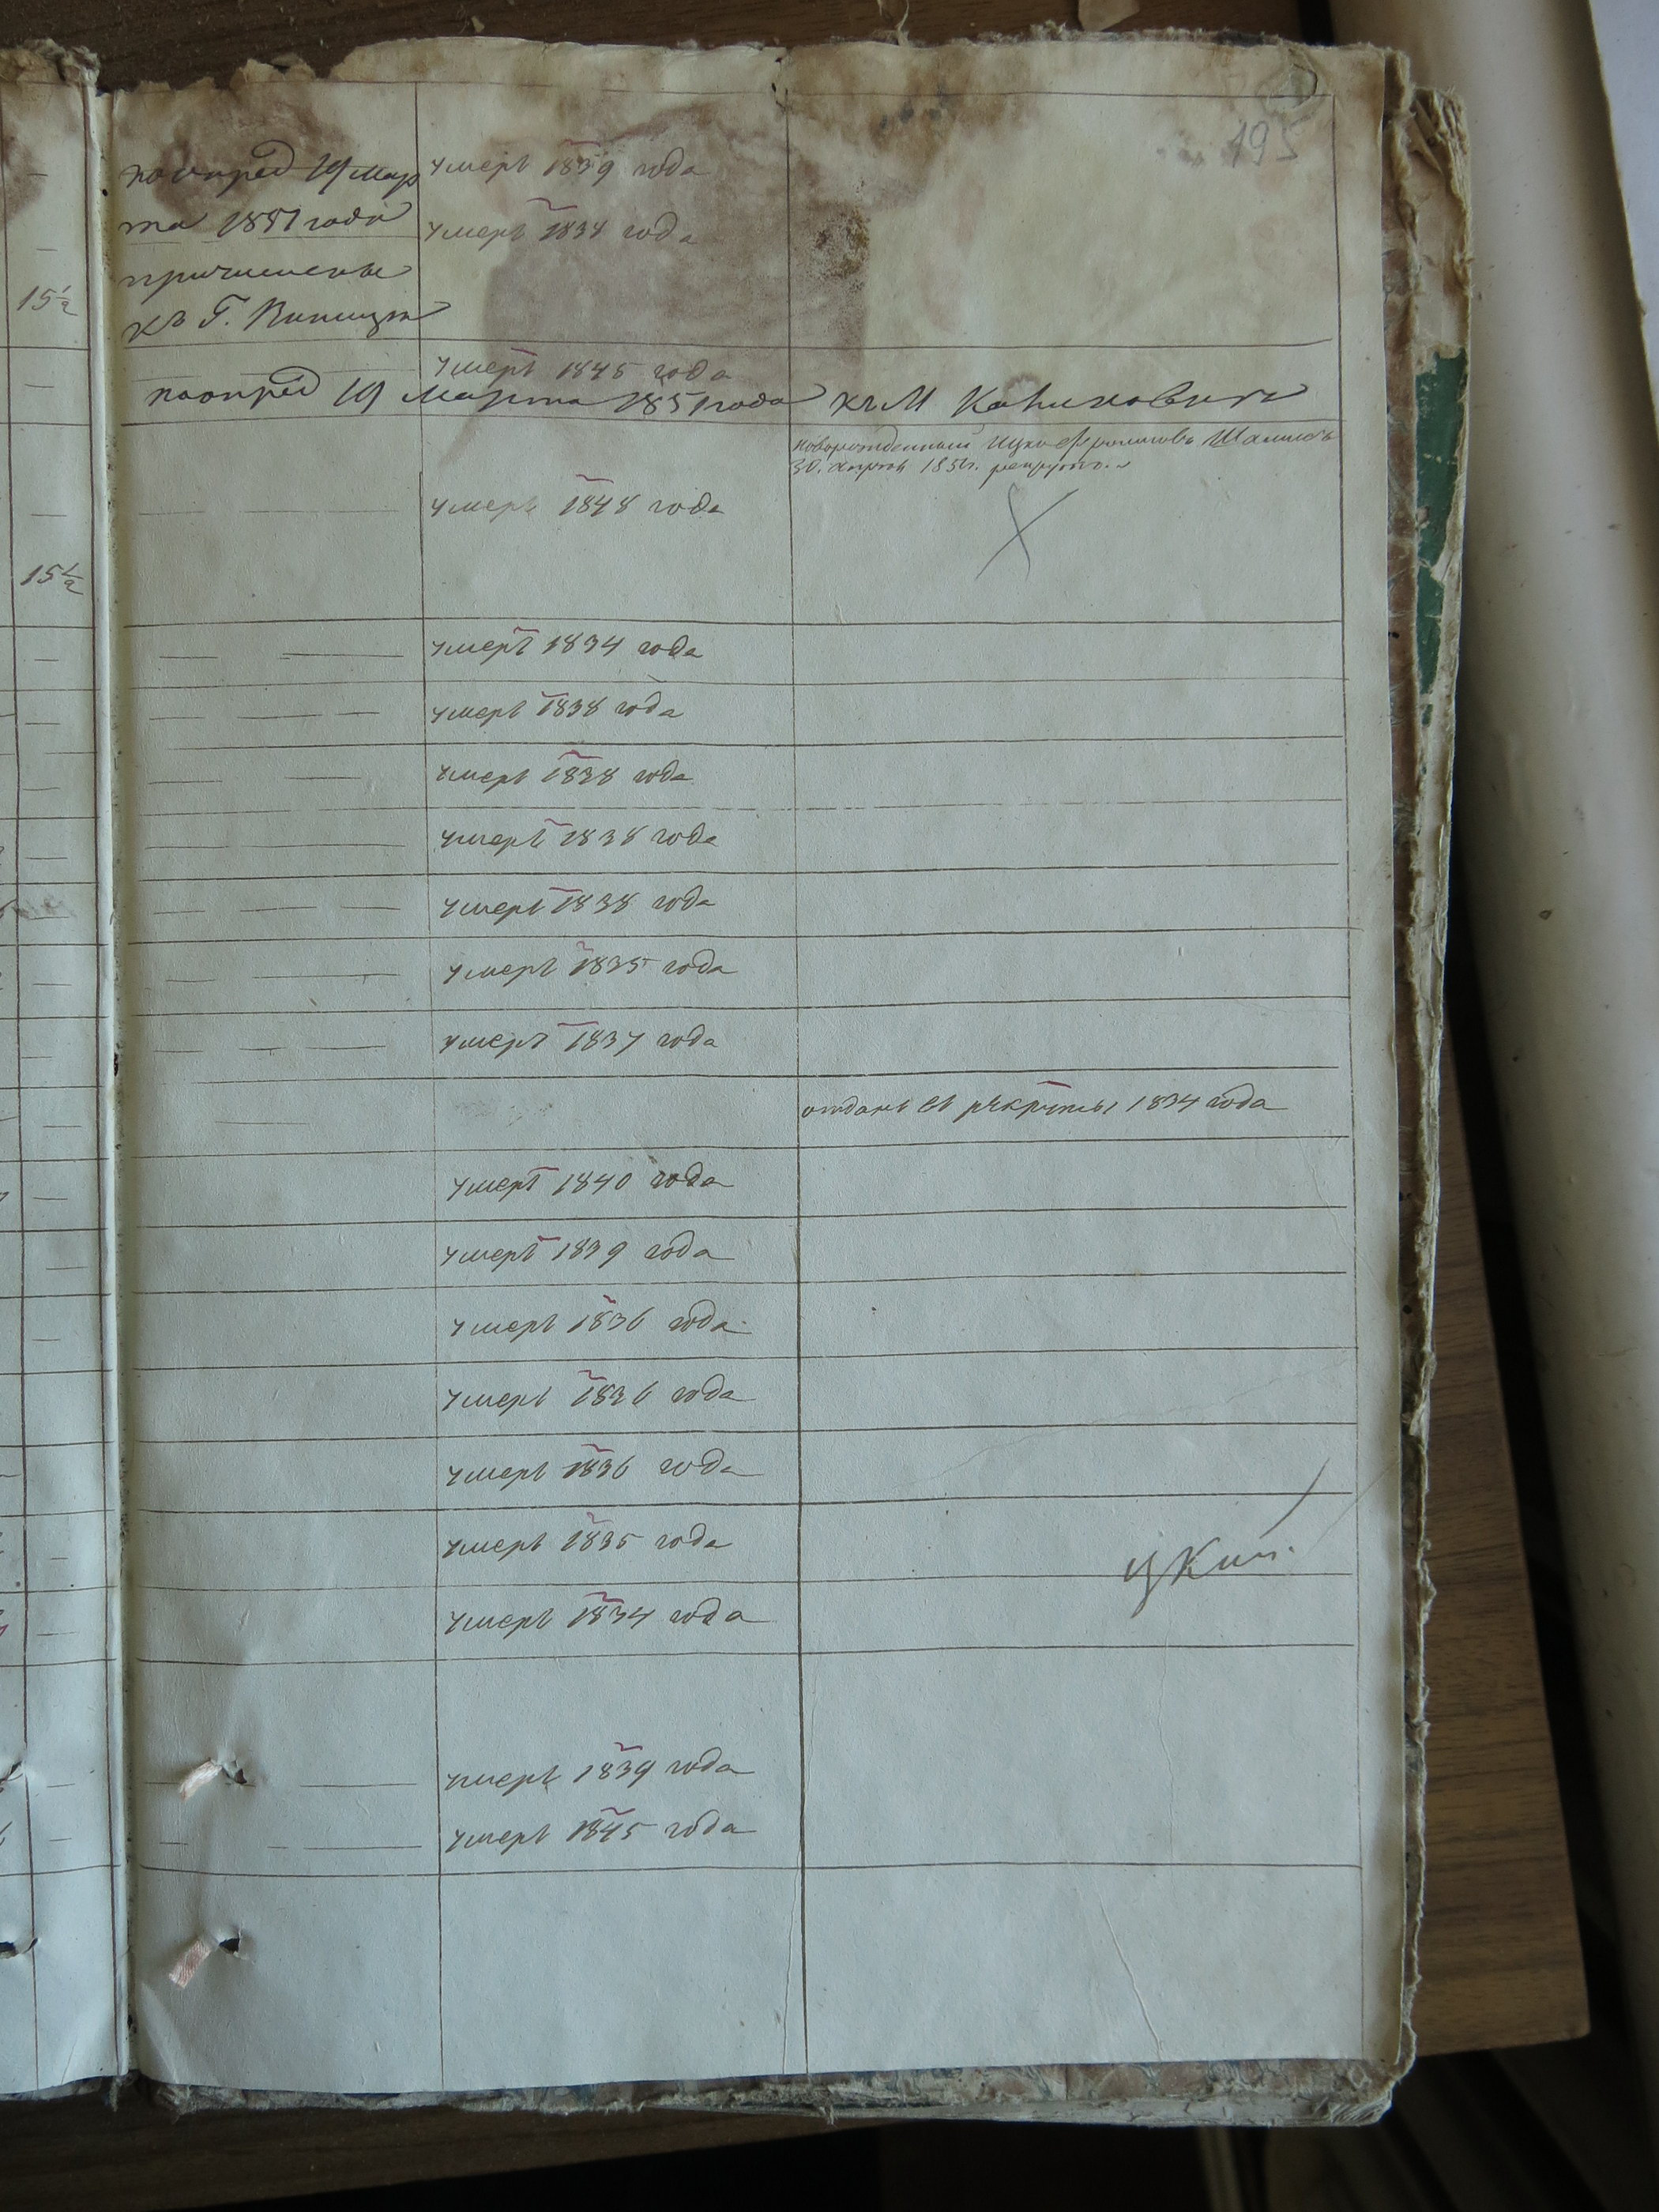 195
по опред 19 мар
та 1851 года
причислены
къ Г. Винницы
умеръ 1839 года
умеръ 1834 года
15 1/2
умеръ 1845 года
по опред 19 Марта 1851 года къ М
новорожденный Ицко
30. 185 г.
умеръ 1848 года
15 1/2
умеръ 1834 года
умеръ 1838 года
умеръ 1838 года
умеръ 1838 года
умеръ 1838 года
умеръ 1835 года
умеръ 1837 года
отданъ въ рекруты 1834 года
умеръ 1840 года
умеръ 1839 года
умеръ 1836 года
умеръ 1836 года
умеръ 1836 года
умеръ 1835 года
умеръ 1834 года
умеръ 1839 года
умеръ 1845 года